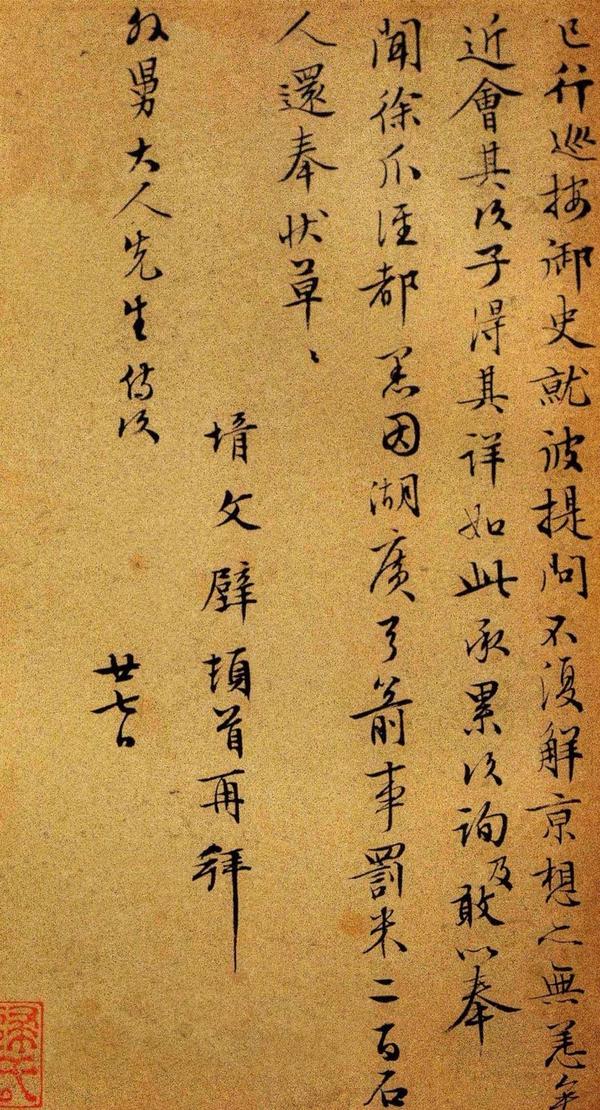 已行巡按御史就彼提問不復解京想亦無恙
近會其次子得其詳如此承累次詢及敢以奉
聞徐爪涇都憲因湖廣弓箭事罰米二百石
人還奉狀草〻
壻文壁頓首再拜
外舅大人先生侍次
廿七日